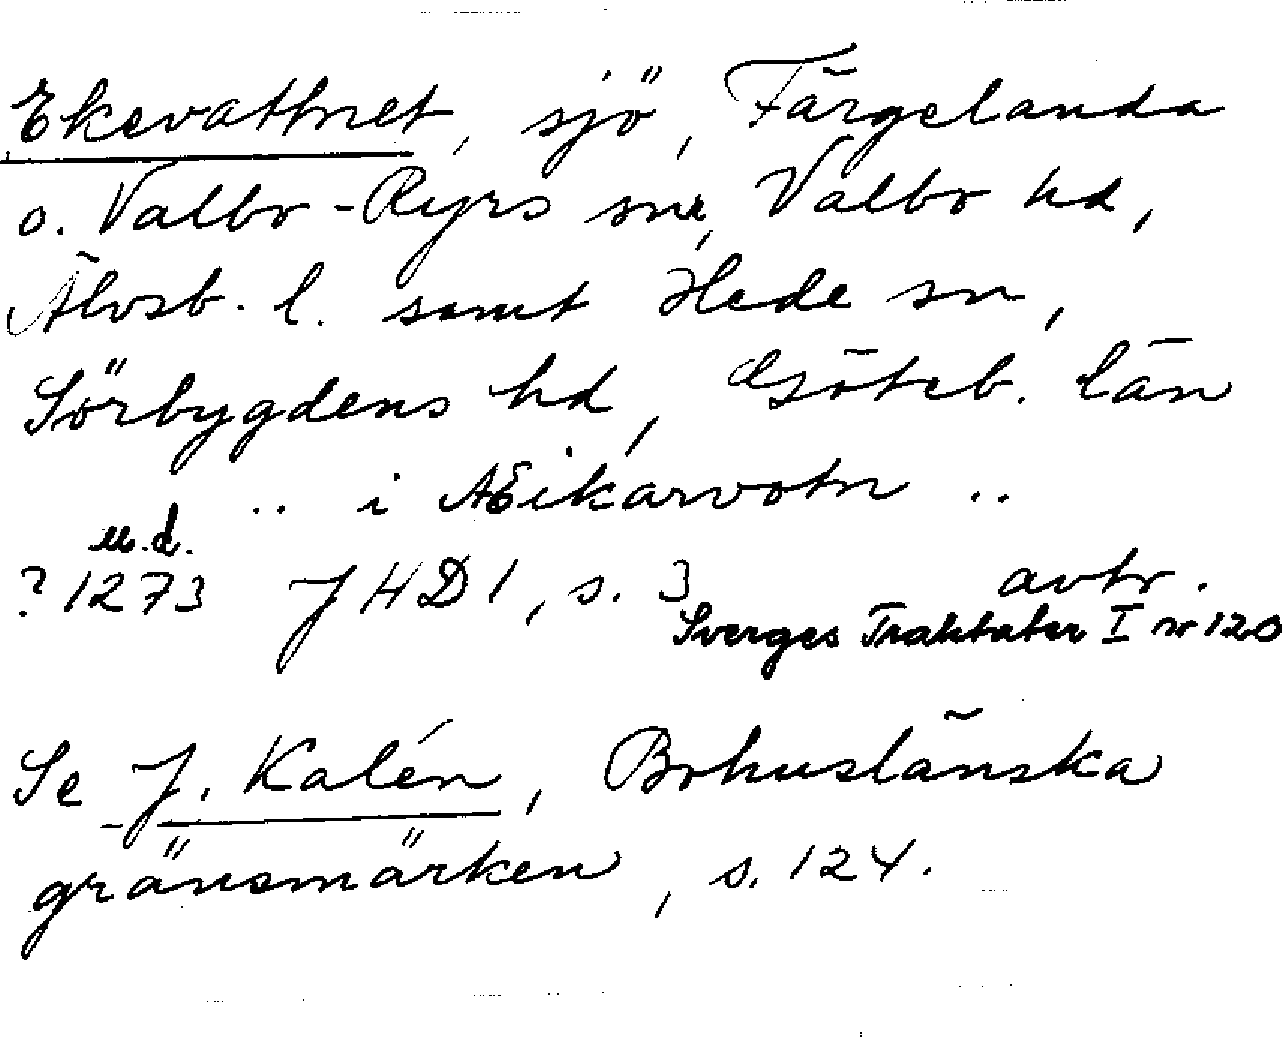 Ekevattnet, sjö, Färgelanda
o. Valbo-Ryrs snr, Valbo hd,
Älvsb. l. samt Hede sn,
Sörbygdens hd, Göteb. län
.. i Æikarvotn ..
u.d.
? 1273 JHD1, s. 3 avtr.
Sverges Traktater I nr 120
Se J. Kalén, Bohuslänska
gränsmärken, s. 124.